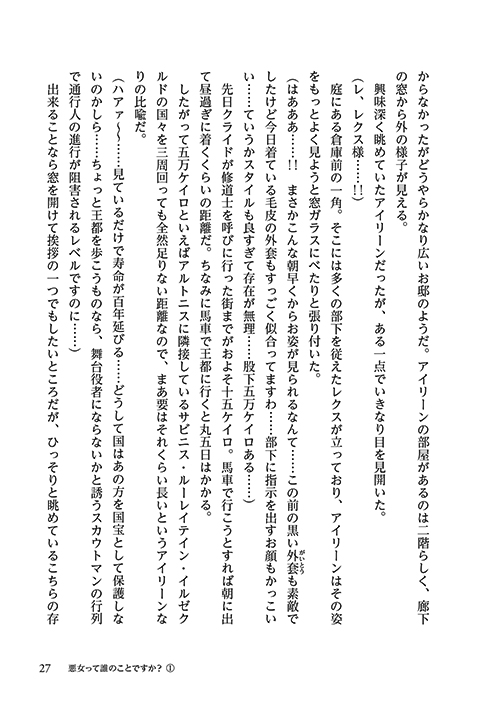 からなかったがどうやらかなり広いお邸のようだ。アイリーンの部屋があるのは二階らしく、廊下
の窓から外の様子が見える。
興味深く眺めていたアイリーンだったが、ある一点でいきなり目を見開いた。
(レ、レクス様……!!)
庭にある倉庫前の一角。そこには多くの部下を従えたレクスが立っており、アイリーンはその姿
をもっとよく見ようと窓ガラスにべたりと張り付いた。
(はあああ……!! まさかこんな朝早くからお姿が見られるなんて……この前の黒い外套も素敵で
がいとう
したけど今日着ている毛皮の外套もすっごく似合ってますわ……部下に指示を出すお顔もかっこい
い……ていうかスタイルも良すぎて存在が無理……股下五万ケイロある……)
先日クライドが修道士を呼びに行った街までがおよそ十五ケイロ。馬車で行こうとすれば朝に出
て昼過ぎに着くくらいの距離だ。ちなみに馬車で王都に行くと丸五日はかかる。
したがって五万ケイロといえばアルトニスに隣接しているサビニス・ルーレイテイン・イルゼク
ルドの国々を三周回っても全然足りない距離なので、まあ要はそれくらい長いというアイリーンな
りの比喩だ。
(ハアァ〜〜……見ているだけで寿命が百年延びる……どうして国はあの方を国宝として保護しな
いのかしら……ちょっと王都を歩こうものなら、舞台役者にならないかと誘うスカウトマンの行列
で通行人の進行が阻害されるレベルですのに……)
出来ることなら窓を開けて挨拶の一つでもしたいところだが、ひっそりと眺めているこちらの存
27 悪女って誰のことですか? ①